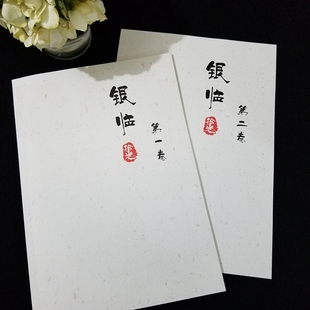 银临
第一卷
银临
第二卷